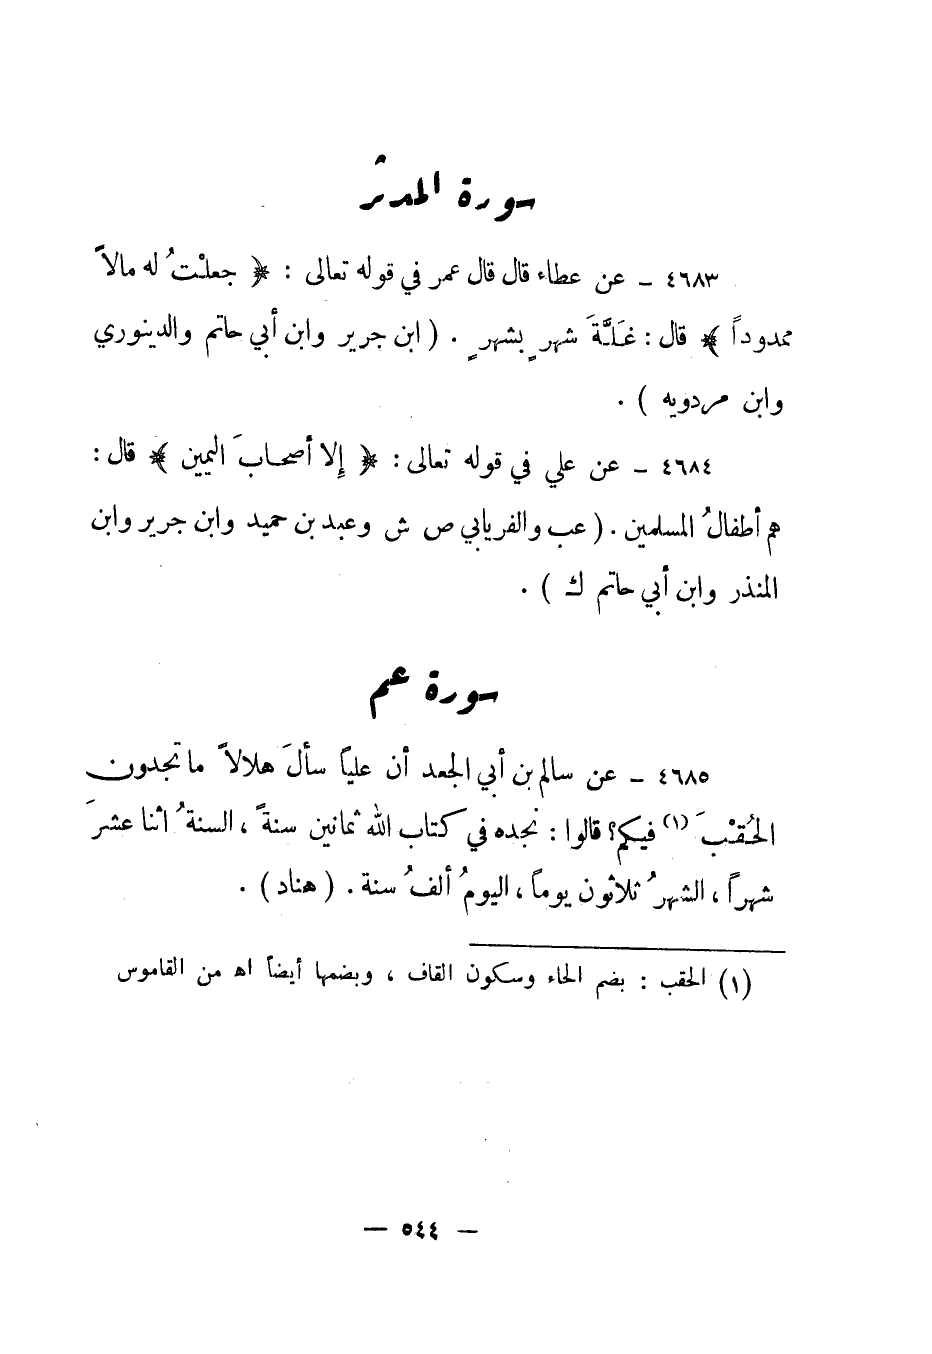 سورة المدثر
٤٦٨٣ - عن عطاء قال قال عمر في قوله تعالى : ﴿ جعلْتُ له مالاً
ممدوداً ﴾ قال : غَلَّةَ شهرٍ بشهرٍ . ( ابن جرير وابن أبي حاتم والدينوري
وابن مردويه ) .
٤٦٨٤ - عن علي في قوله تعالى : ﴿ إلا أصحابَ اليمين ﴾ قال :
هم أطفالُ المسلمين . ( عب والفريابي ص ش وعبد بن حميد وابن جرير وابن
المنذر وابن أبي حاتم ك ) .
سورة عم
٤٦٨٥ - عن سالم بن أبي الجعد أن علياً سألَ هلالاً ما تجدون
الحُقْبَ (١) فيكم؟ قالوا : نجده في كتاب الله ثمانين سنةً ، السنةُ اثنا عشرَ
شهراً ، الشهرُ ثلاثون يوماً ، اليومُ ألفُ سنة . ( هناد ) .
(١) الحقب : بضم الحاء وسكون القاف ، وبضمها أيضاً اهـ من القاموس
— ٥٤٤ —